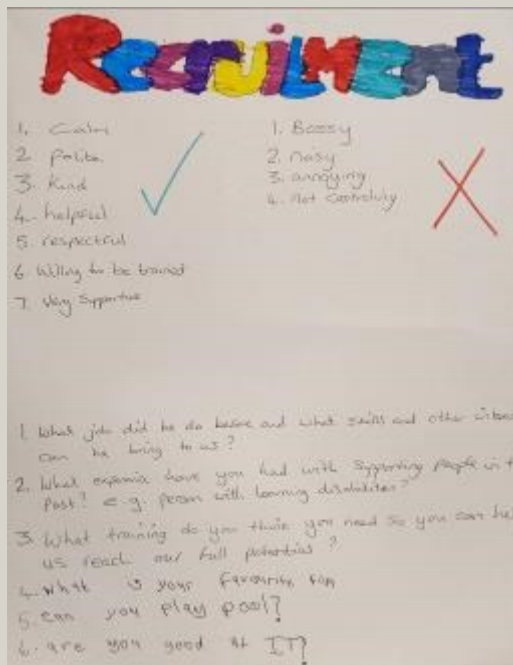 Recruitment
1. Calm
2 Polite
3. Kind
4. helpful
5. respectful
6 Willing to be trained
7. Very Supportive
1. Bossy
2. nasy
3. annoying
4. Not
1. What job did he do before and what skills and other
can he bring to us?
2. What have you had with supporting people in
Past? e.g. person with learning disabilities?
3. What training do you think you need so you can
us reach our full potential?
4. What is your favourite
5. can you play pool?
6. are you good at IT?